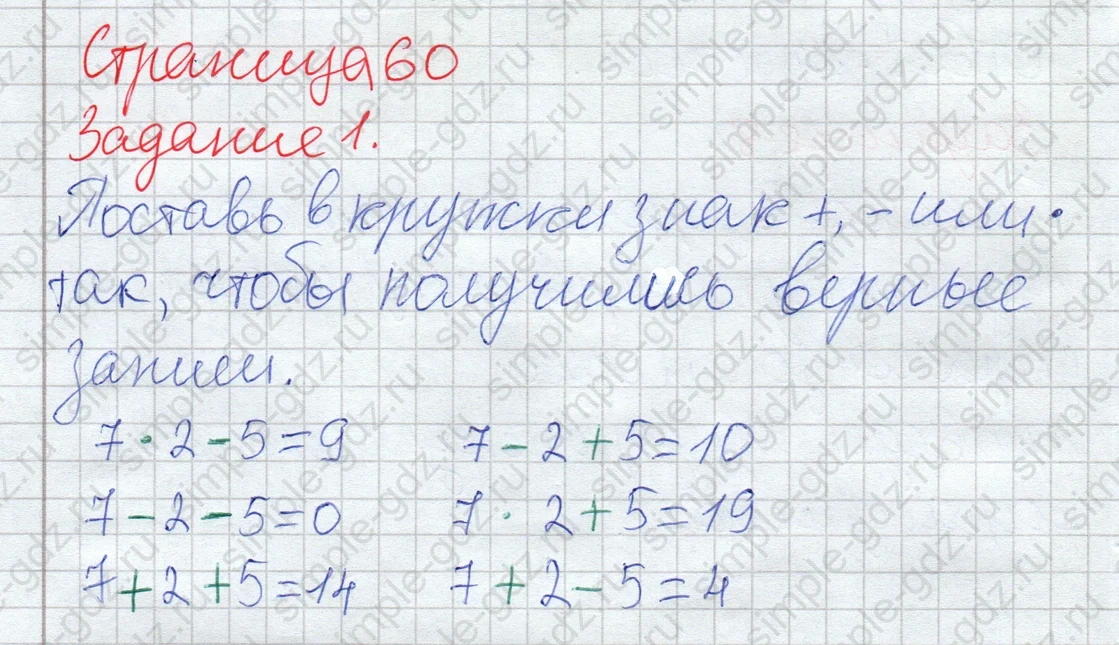 Страница 60
Задание 1.
Поставь в кружки знак +, - или ·
так, чтобы получились верные
записи.
7 · 2 - 5 = 9 7 - 2 + 5 = 10
7 - 2 - 5 = 0 7 · 2 + 5 = 19
7 + 2 + 5 = 14 7 + 2 - 5 = 4
simple-gdz.ru